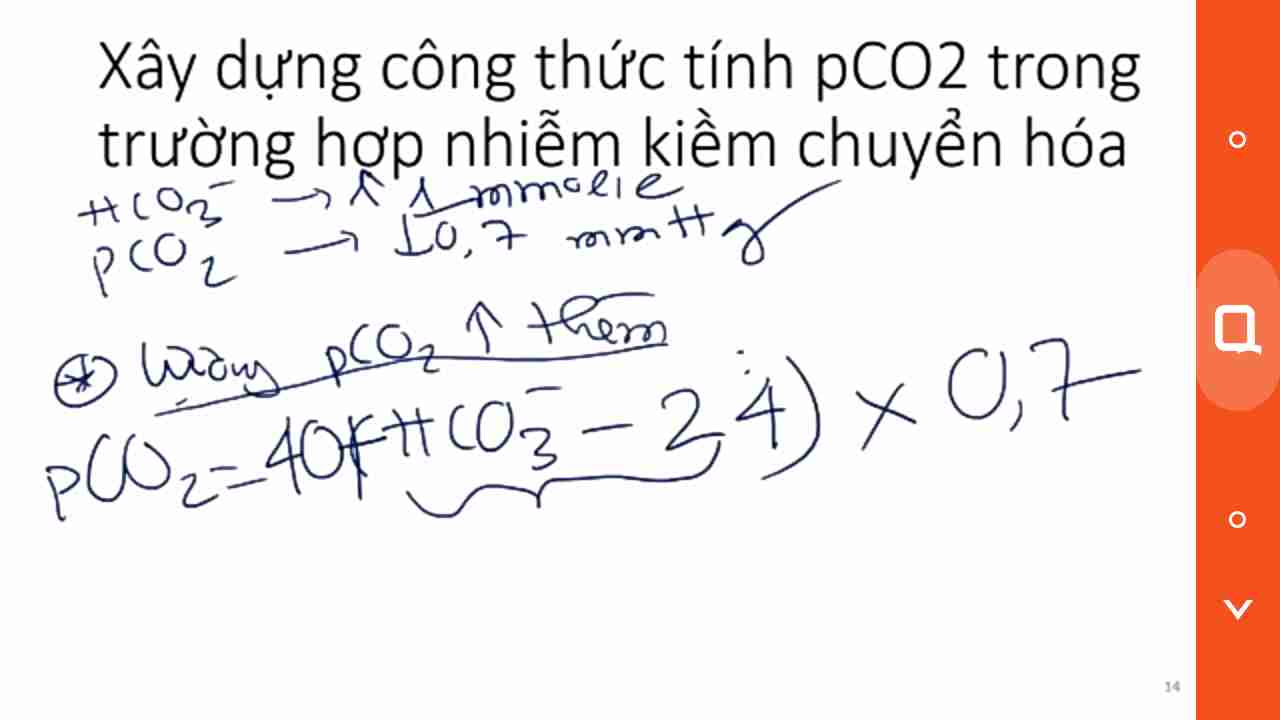 Xây dựng công thức tính pCO2 trong
trường hợp nhiễm kiềm chuyển hóa
HCO3⁻ → ↑ 1 mmol
pCO2 → 0,7 mmHg
lượng pCO2 ↑ thêm
pCO2 = 40 + (HCO3⁻ - 24) × 0,7
14